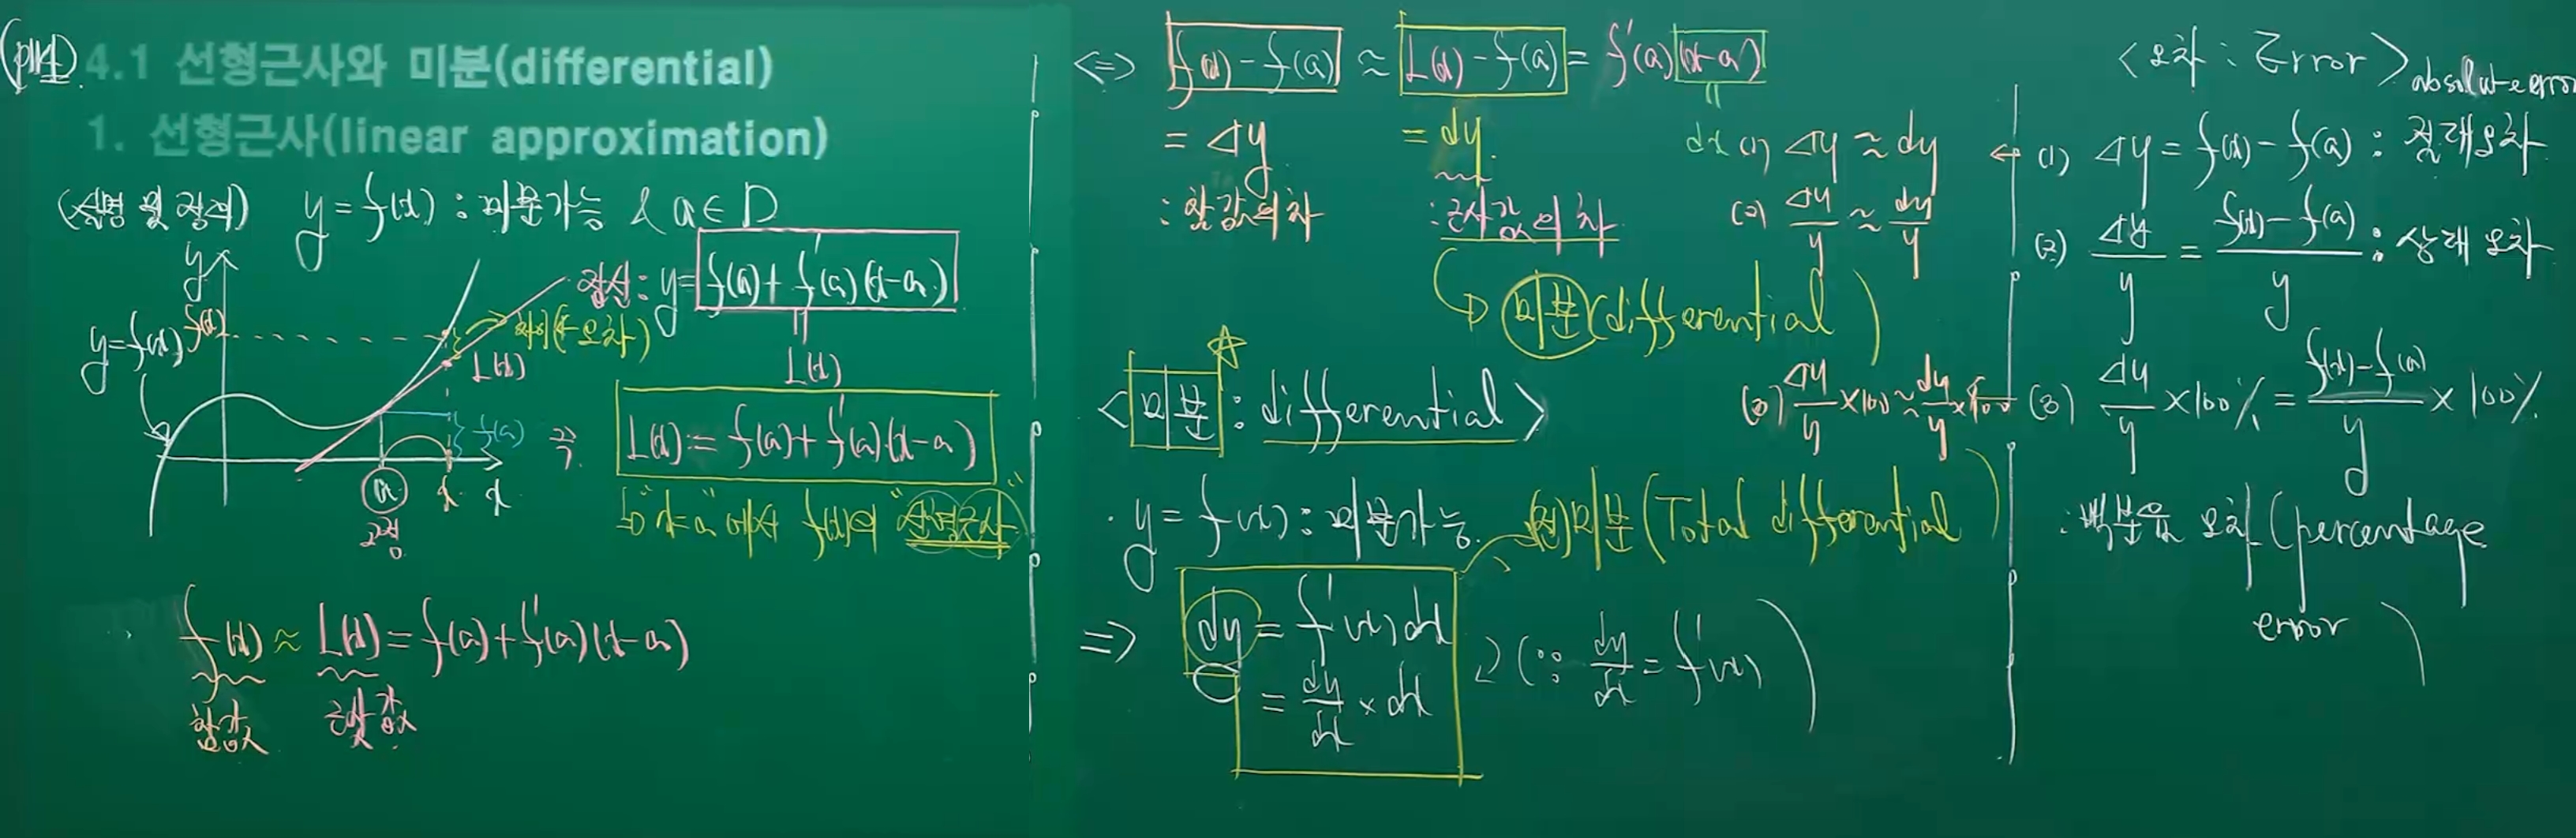 (p141) 4.1 선형근사와 미분(differential)
1. 선형근사(linear approximation)
(설명 및 정의) y = f(x) : 미분가능 & a ∈ D
y
접선 : y = f(a) + f'(a)(x-a)
y = f(x)
f(x)
차이(=오차)
L(x)
L(x)
f(a)
a x x
고정
⇒ L(x) := f(a) + f'(a)(x-a)
→ "x=a"에서 f(x)의 "선형근사"
f(x) ≈ L(x) = f(a) + f'(a)(x-a)
참값 근사값
<=> f(x) - f(a) ≈ L(x) - f(a) = f'(a)(x-a)
= Δy = dy dx
: 참값의 차 : 근사값의 차
→ 미분(differential)
(1) Δy ≈ dy
(2) Δy/y ≈ dy/y
(3) Δy/y × 100 ≈ dy/y × 100
<미분 : differential>
· y = f(x) : 미분가능.
(전)미분(Total differential)
=> dy = f'(x)dx
= dy/dx × dx
(∵ dy/dx = f'(x))
<오차 : Error>
absolute error
← (1) Δy = f(x) - f(a) : 절대오차
(2) Δy/y = f(x) - f(a)/y : 상대오차
(3) Δy/y × 100% = f(x) - f(a)/y × 100%
: 백분율 오차(percentage
error)